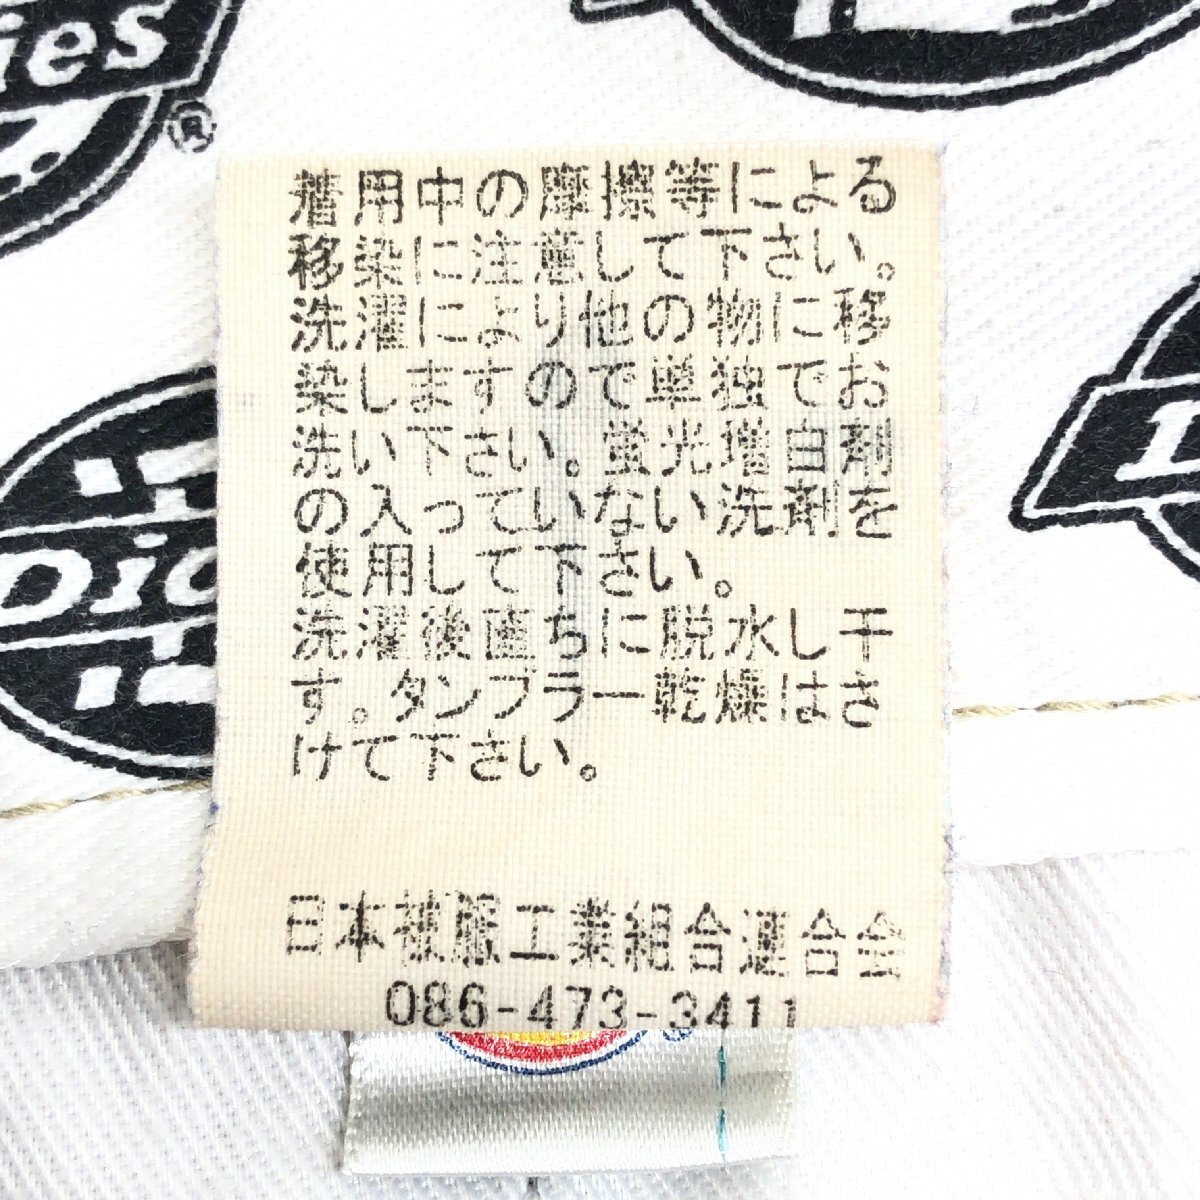 ies
®
着用中の摩擦等による
移染に注意して下さい。
洗濯により他の物に移
染しますので単独でお
洗い下さい。蛍光増白剤
の入っていない洗剤を
使用して下さい。
洗濯後直ちに脱水し干
す。タンブラー乾燥はさ
けて下さい。
日本被服工業組合連合会
086-473-3411
Dic